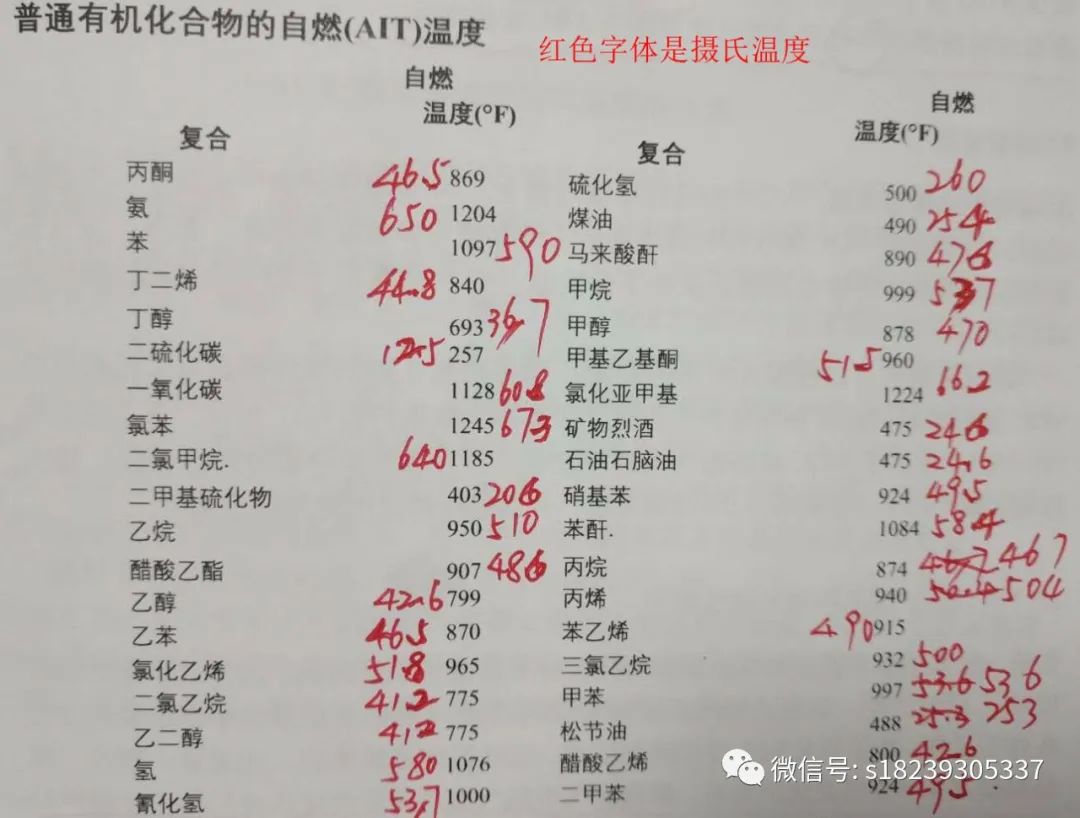 普通有机化合物的自燃(AIT)温度
红色字体是摄氏温度
自燃
温度(°F)
复合
自燃
温度(°F)
复合
丙酮 465 869 硫化氢 500 260
氨 650 1204 煤油 490 254
苯 1097 590 马来酸酐 890 476
丁二烯 44.8 840 甲烷 999 537
丁醇 693 36.7 甲醇 878 470
二硫化碳 125 257 甲基乙基酮 515 960
一氧化碳 1128 608 氯化亚甲基 1224 66.2
氯苯 1245 673 矿物烈酒 475 246
二氯甲烷. 640 1185 石油石脑油 475 24.6
二甲基硫化物 403 206 硝基苯 924 495
乙烷 950 510 苯酐. 1084 58.4
醋酸乙酯 907 486 丙烷 874 467 467
乙醇 42.6 799 丙烯 940 50.4 504
乙苯 465 870 苯乙烯 490 915
氯化乙烯 51.8 965 三氯乙烷 932 500
二氯乙烷 41.2 775 甲苯 997 53.6 536
乙二醇 412 775 松节油 488 25.3 253
氢 580 1076 醋酸乙烯 800 426
氰化氢 53.7 1000 二甲苯 924 495
微信号: s18239305337